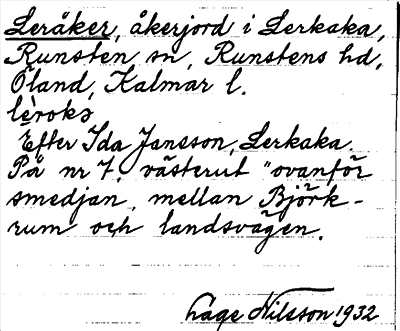 Leråker, åkerjord i Lerkaka,
Runsten sn, Runstens hd,
Öland, Kalmar l.
lèroks
Efter Ida Jansson, Lerkaka.
På nr 7, västerut "ovanför
smedjan, mellan Björk-
rum och landsvägen.
Lage Nilsson 1932